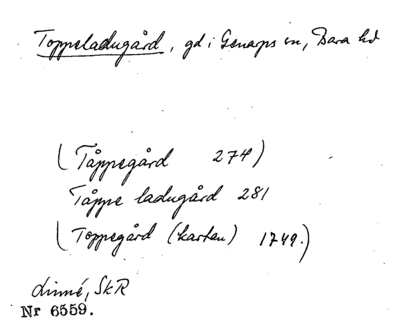 Toppeladugård, gd i Genarps sn, Bara hd
(Tåppegård 274)
Tåppe ladugård 281
(Toppegård (kartan) 1749.)
Linné, SkR
Nr 6559.